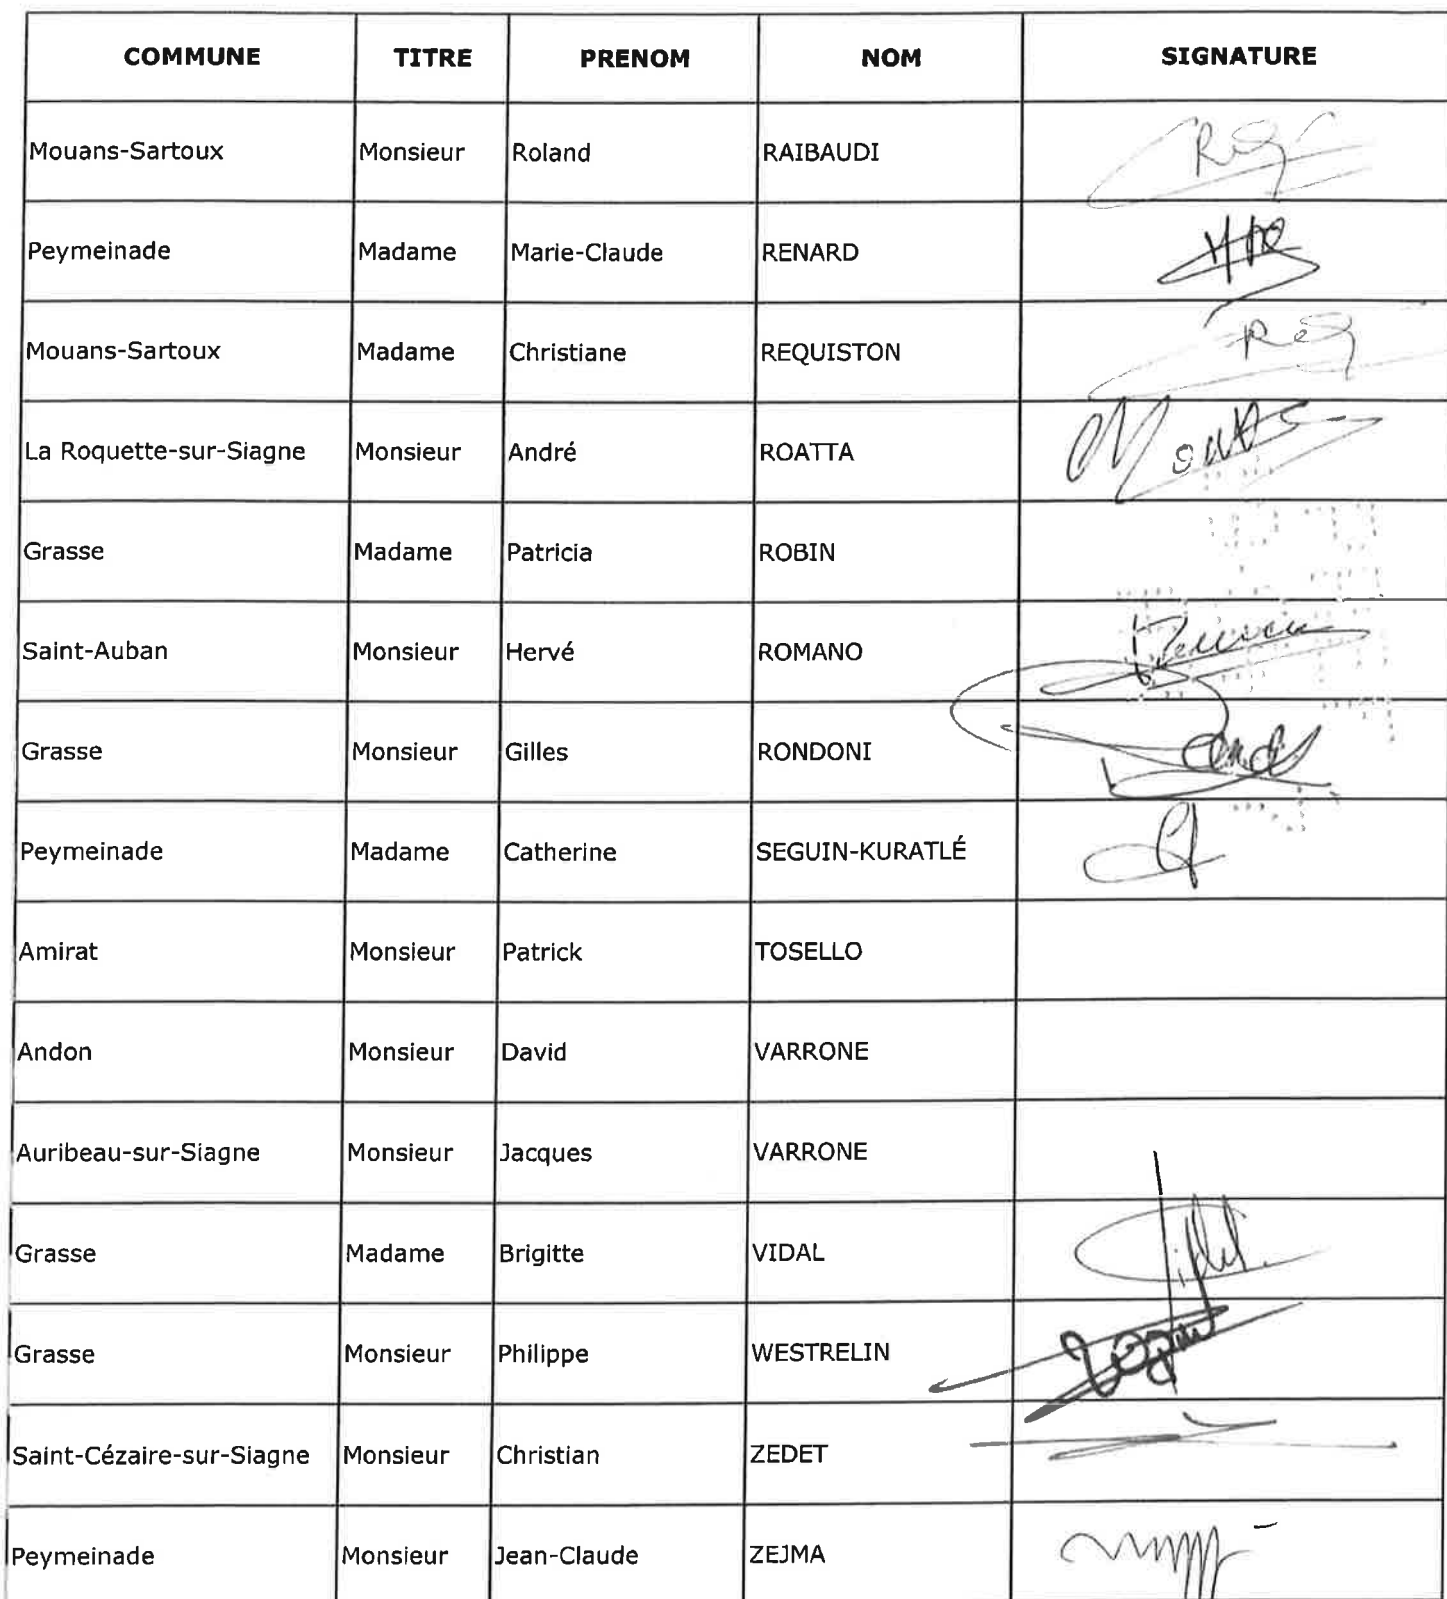 COMMUNE TITRE PRENOM NOM SIGNATURE
Mouans-Sartoux Monsieur Roland RAIBAUDI
Peymeinade Madame Marie-Claude RENARD
Mouans-Sartoux Madame Christiane REQUISTON
La Roquette-sur-Siagne Monsieur André ROATTA
Grasse Madame Patricia ROBIN
Saint-Auban Monsieur Hervé ROMANO
Grasse Monsieur Gilles RONDONI
Peymeinade Madame Catherine SEGUIN-KURATLÉ
Amirat Monsieur Patrick TOSELLO
Andon Monsieur David VARRONE
Auribeau-sur-Siagne Monsieur Jacques VARRONE
Grasse Madame Brigitte VIDAL
Grasse Monsieur Philippe WESTRELIN
Saint-Cézaire-sur-Siagne Monsieur Christian ZEDET
Peymeinade Monsieur Jean-Claude ZEJMA